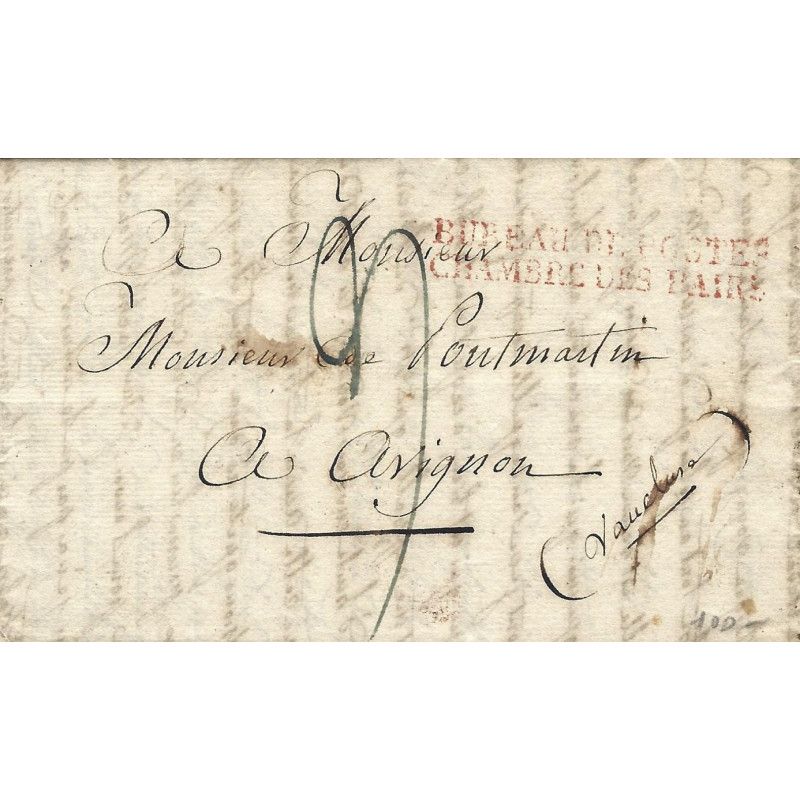 A Monsieur
BUREAU DE POSTES
CHAMBRE DES PAIRS
Monsieur de Pontmartin
A Avignon
(Vaucluse)
9
100-